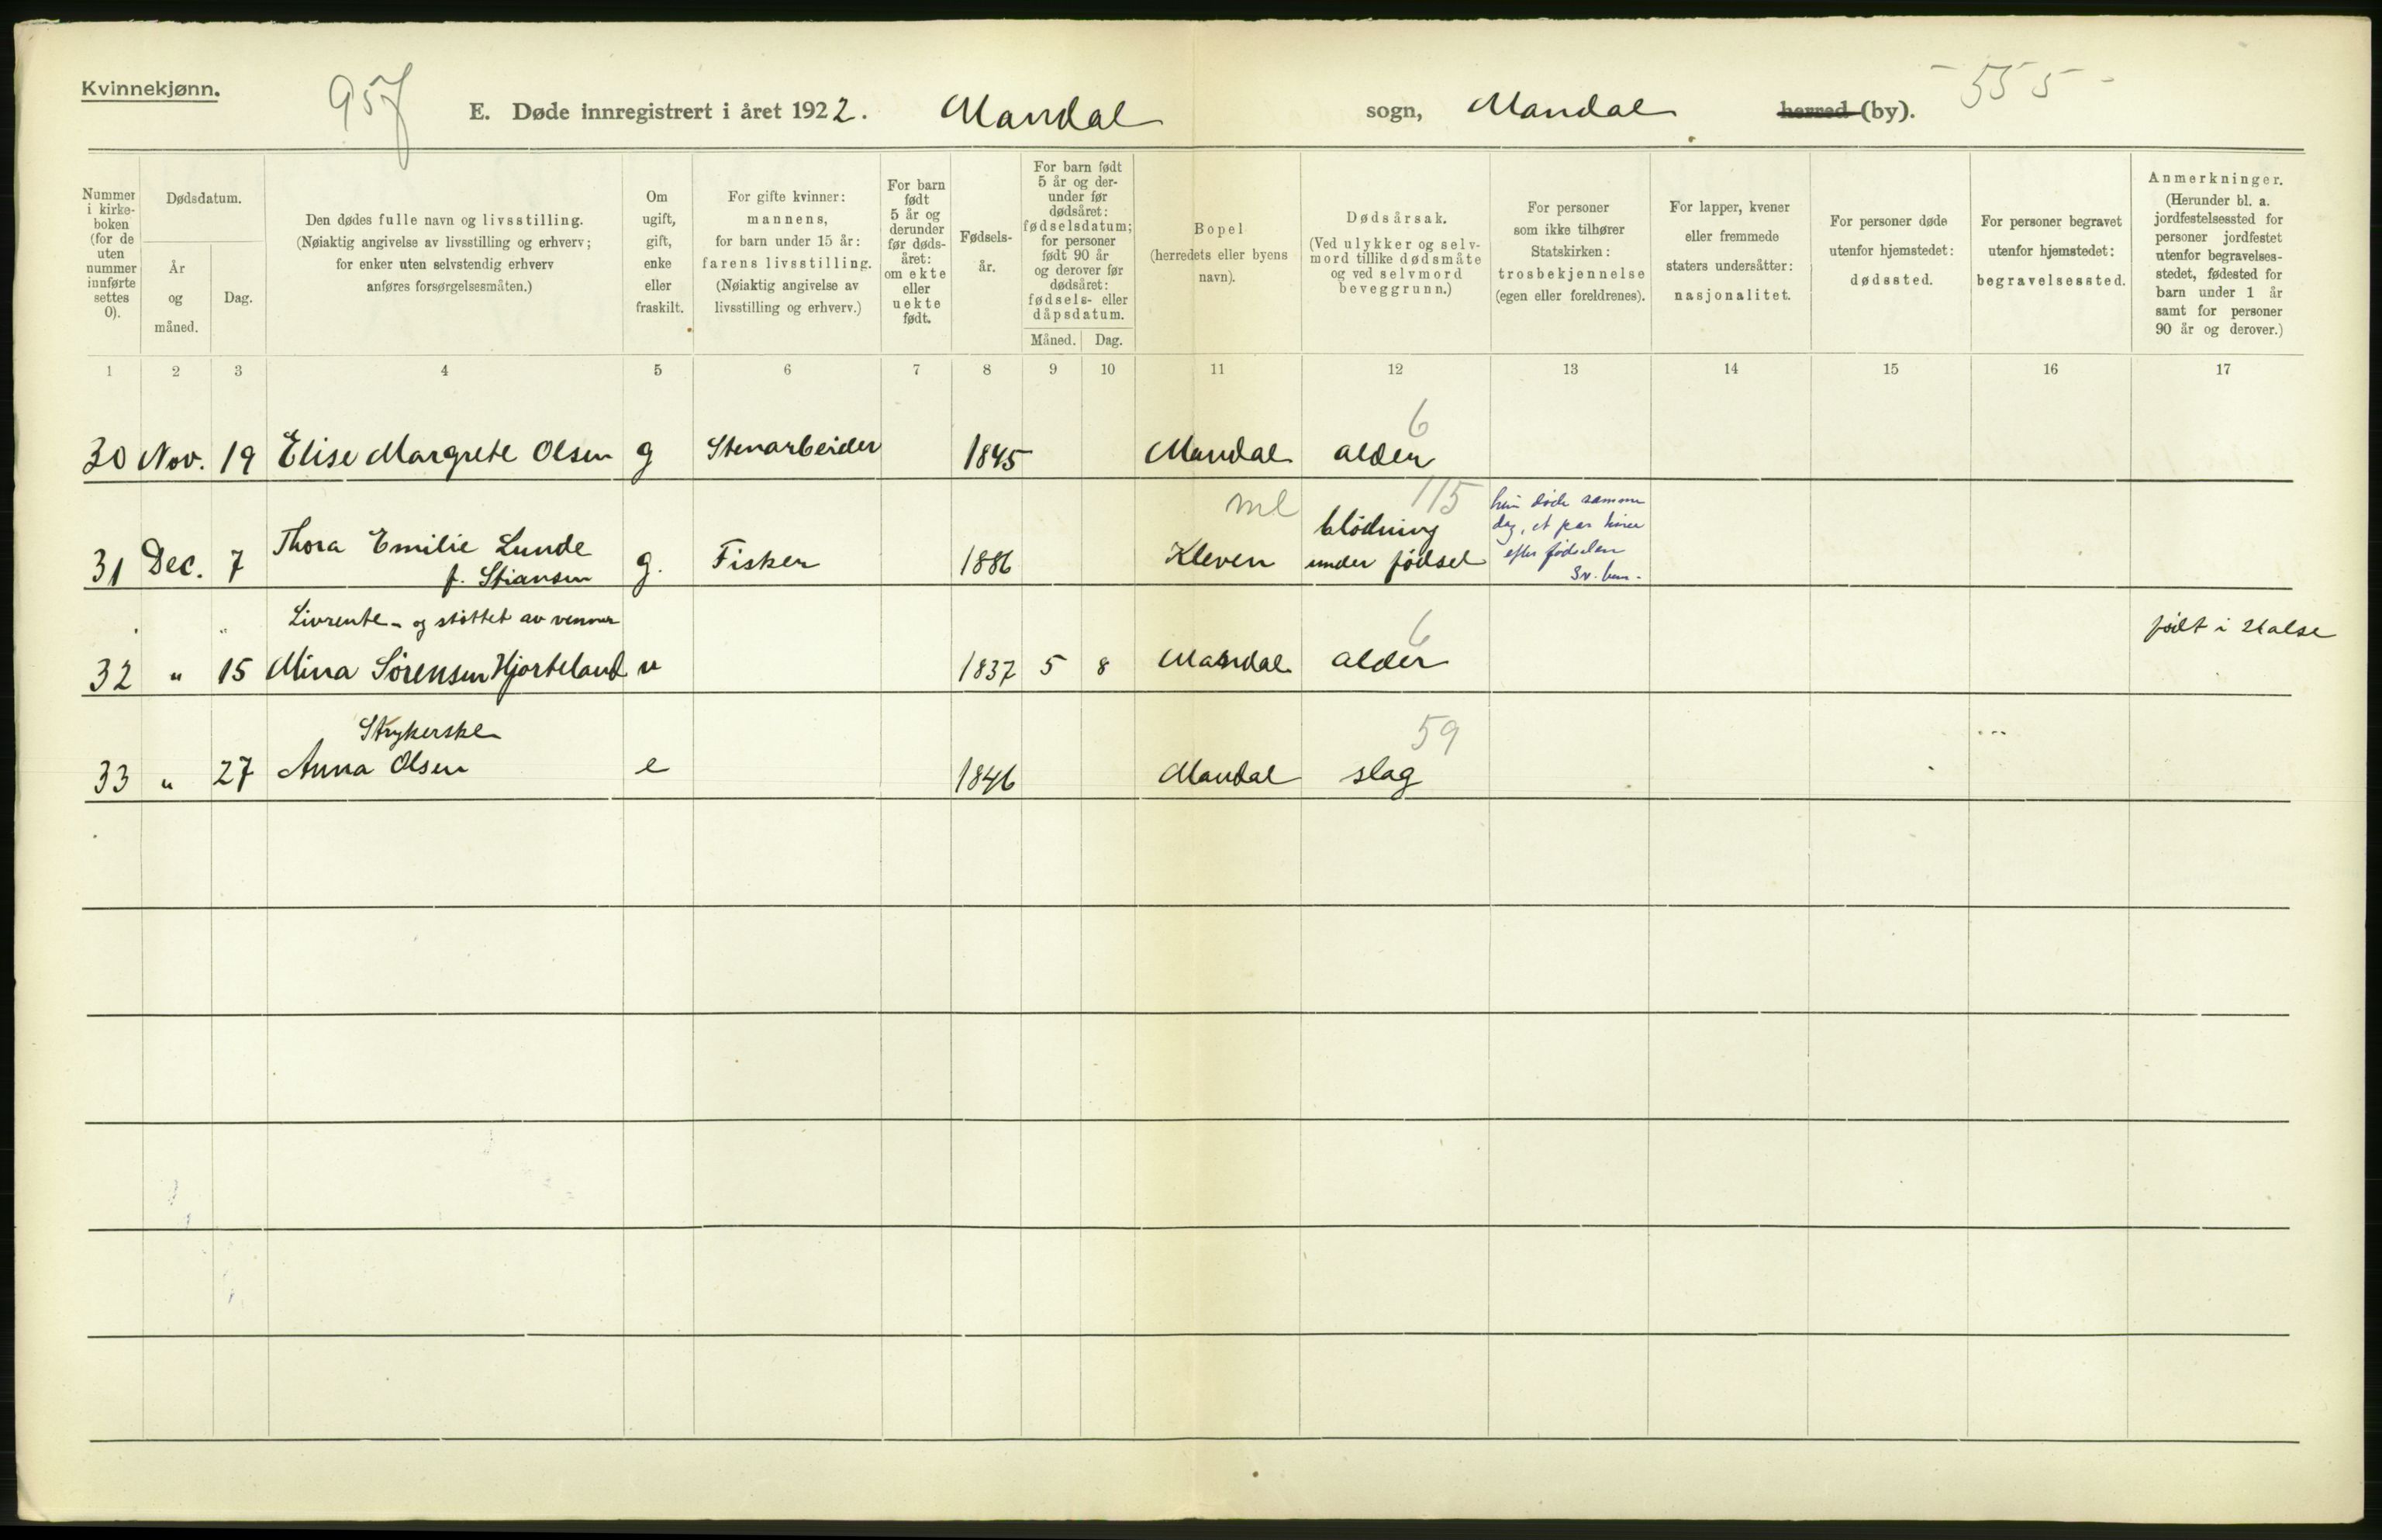 Kvinnekjønn.
957
E. Døde innregistrert i året 1922. Mandal sogn, Mandal herred (by).
- 555 -
Nummer i kirkeboken (for de uten nummer innførte settes 0).
Dødsdatum.
År og måned.
Dag.
Den dødes fulle navn og livsstilling.
(Nøiaktig angivelse av livsstilling og erhverv;
for enker uten selvstendig erhverv
anføres forsørgelsesmåten.)
Om ugift, gift, enke eller fraskilt.
For gifte kvinner:
mannens,
for barn under 15 år:
farens livsstilling.
(Nøiaktig angivelse av
livsstilling og erhverv.)
For barn født 5 år og derunder før dødsåret: om ekte eller uekte født.
Fødselsår.
For barn født 5 år og derunder før dødsåret: fødselsdatum; for personer født 90 år og derover før dødsåret: fødsels- eller dåpsdatum.
Måned. Dag.
Bopel
(herredets eller byens
navn).
Dødsårsak.
(Ved ulykker og selvmord tillike dødsmåte og ved selvmord beveggrunn.)
For personer
som ikke tilhører
Statskirken:
trosbekjennelse
(egen eller foreldrenes).
For lapper, kvener
eller fremmede
staters undersåtter:
nasjonalitet.
For personer døde
utenfor hjemstedet:
dødssted.
For personer begravet
utenfor hjemstedet:
begravelsessted.
Anmerkninger.
(Herunder bl. a.
jordfestelsessted for
personer jordfestet
utenfor begravelsesstedet, fødested for
barn under 1 år
samt for personer
90 år og derover.)
1 2 3 4 5 6 7 8 9 10 11 12 13 14 15 16 17
6
30 Nov. 19 Elise Margrete Olsen g Stenarbeider 1845 Mandal alder
ml 115
31 Dec. 7 Thora Emilie Lunde
f. Stiansen g. Fisker 1886 Kleven blødning
under fødsel
hun døde samme
dag, et par timer
efter fødselen
Livrente - og støttet av venner
6
32 " 15 Mina Sørensen Hjorteland u 1837 5 8 Mandal alder født i Halse
Strykerske
59
33 " 27 Anna Olsen e 1846 Mandal slag